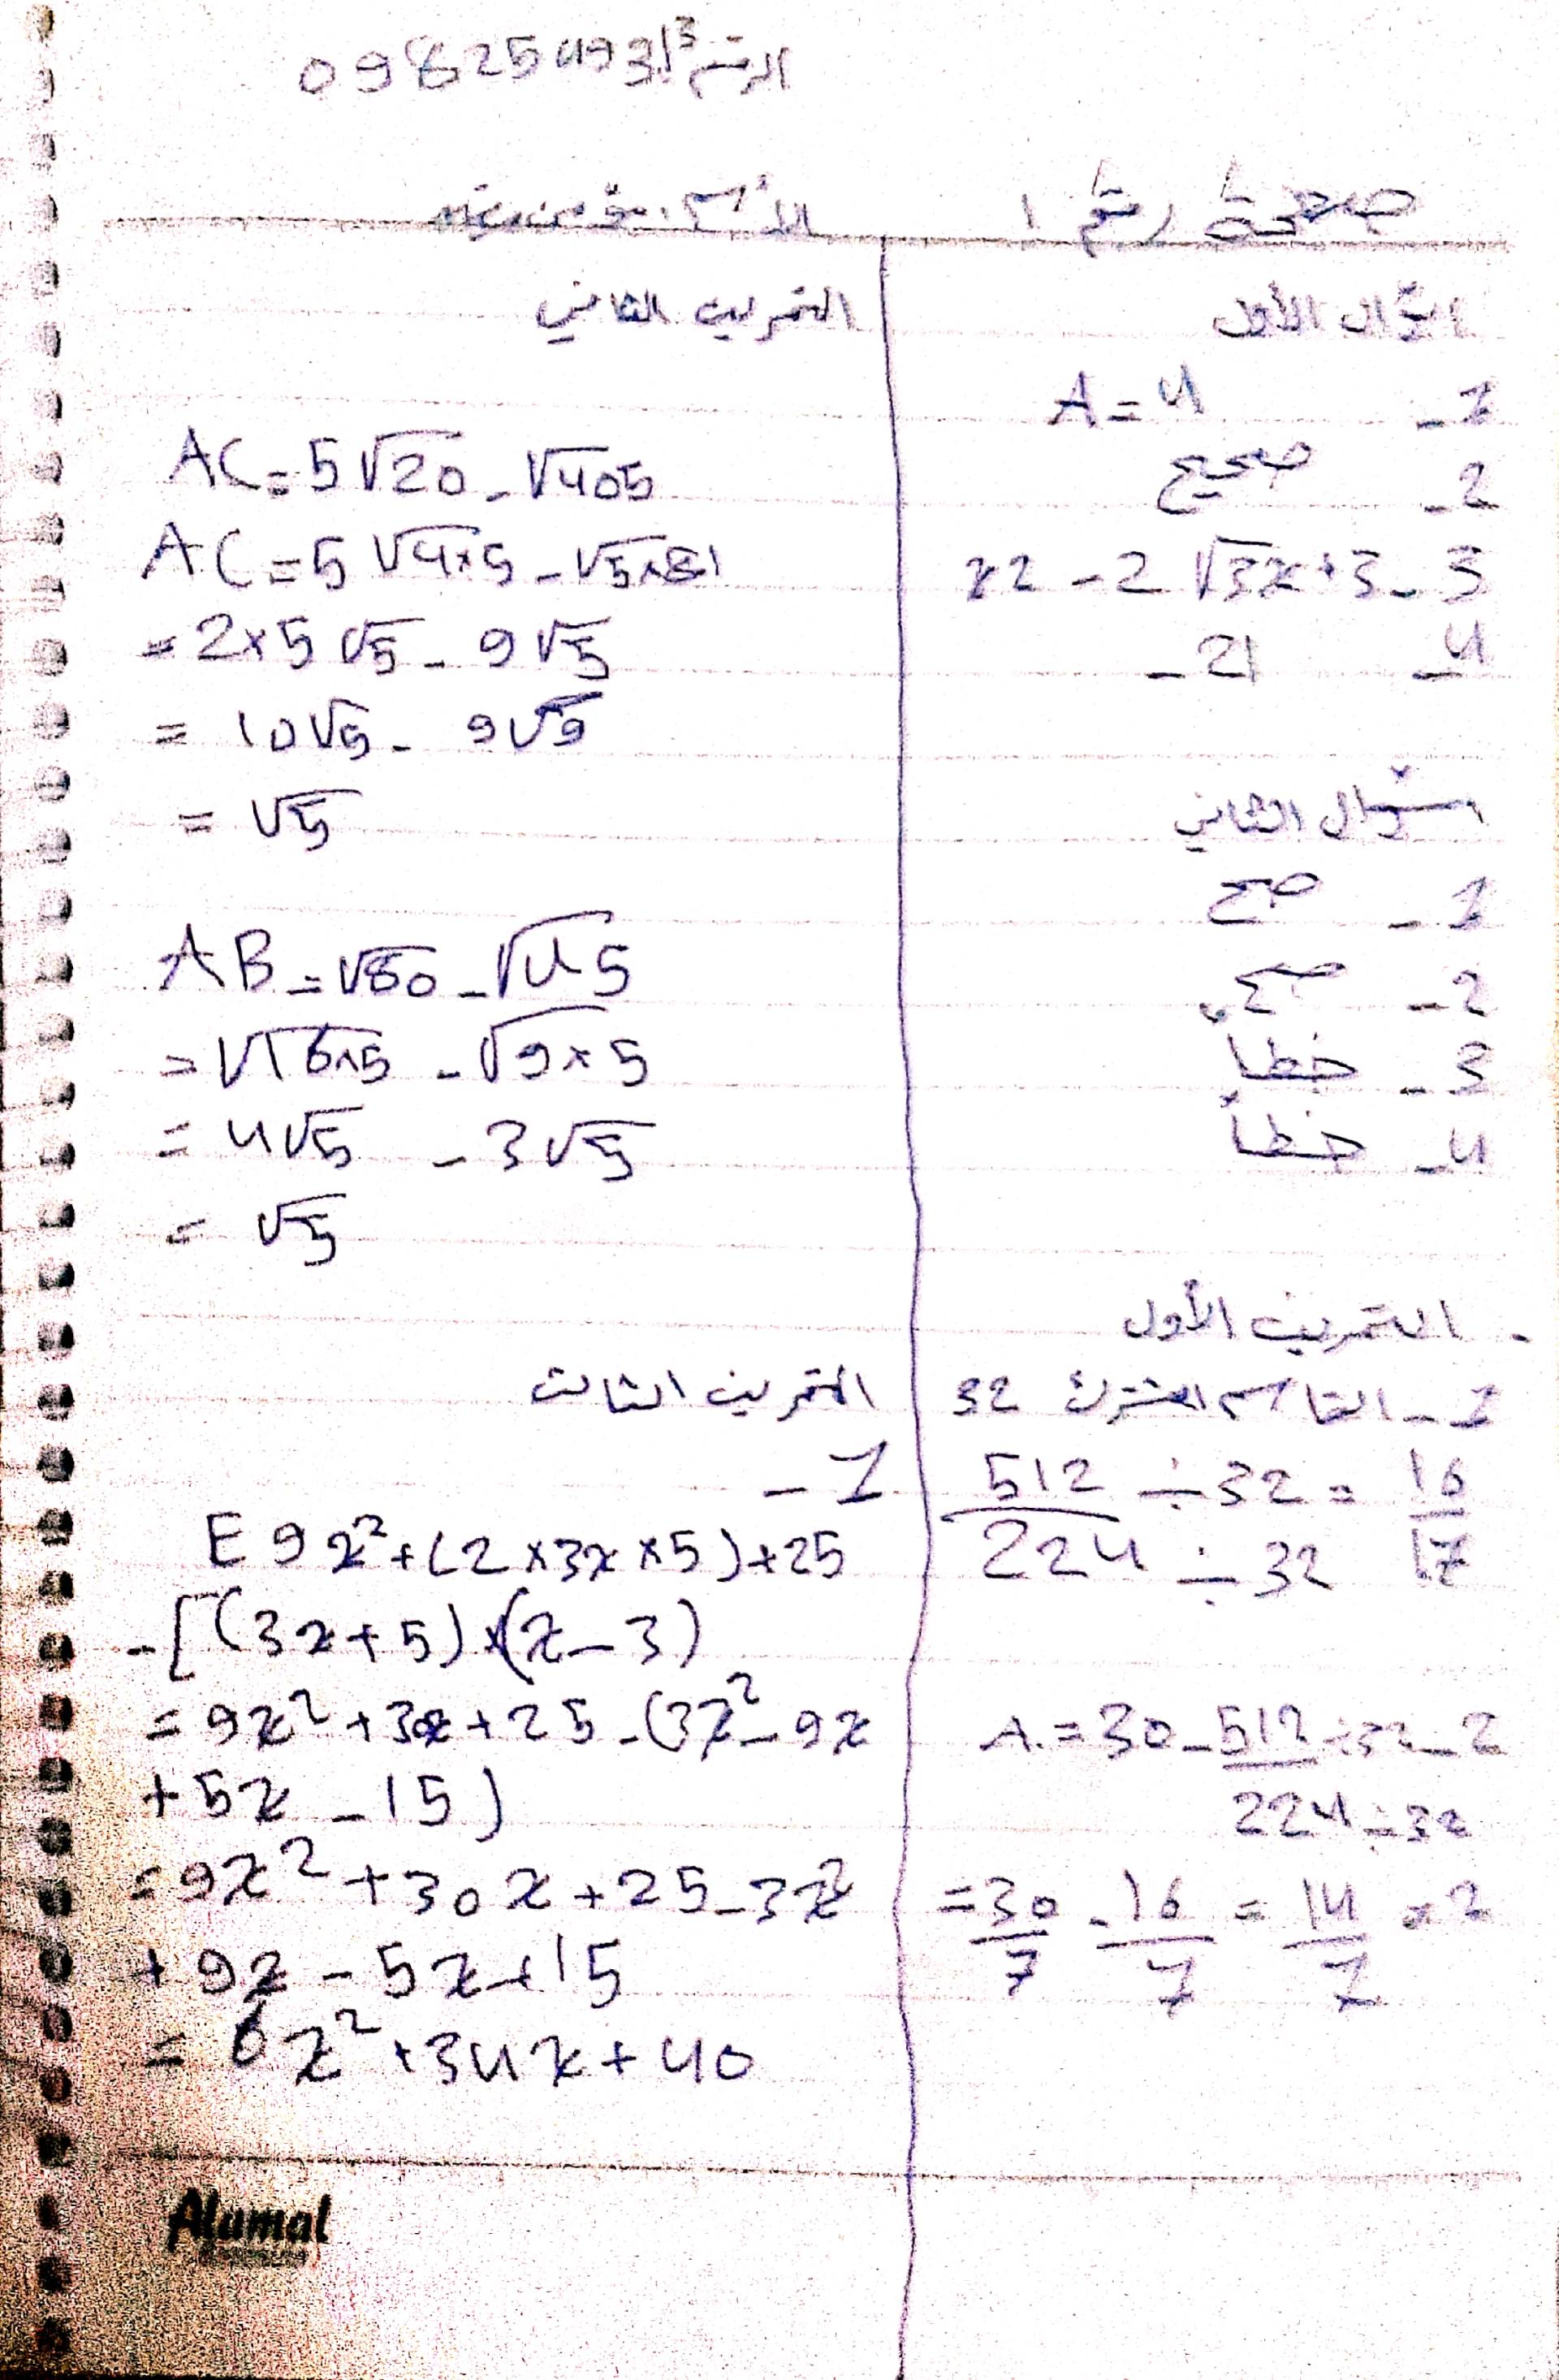 الرقم 098254933
صفحة رقم 1
السؤال الأول
1 - A = 4
2 - صحيح
3 - x2 - 2 √3x + 3
4 - -21
السؤال الثاني
1 - صح
2 - صح
3 - خطأ
4 - خطأ
التمرين الأول
1 - القاسم المشترك 32
512 ÷ 32 = 16
224 ÷ 32 17
2 - A = 30 - 512 ÷ 32
224 ÷ 32
= 30 - 16 = 14 = 2
7 7 7
التمرين الثاني
AC = 5 √20 - √405
AC = 5 √4×5 - √5×81
= 2×5 √5 - 9 √5
= 10√5 - 9√5
= √5
AB = √80 - √45
= √16×5 - √9×5
= 4√5 - 3√5
= √5
التمرين الثالث
1 -
E 9x² + (2×3x×5) + 25
- [(3x+5)×(x-3)
= 9x² + 30x + 25 - (3x² - 9x
+ 5x - 15)
= 9x² + 30x + 25 - 3x²
+ 9x - 5x + 15
= 6x² + 34x + 40
Alamal